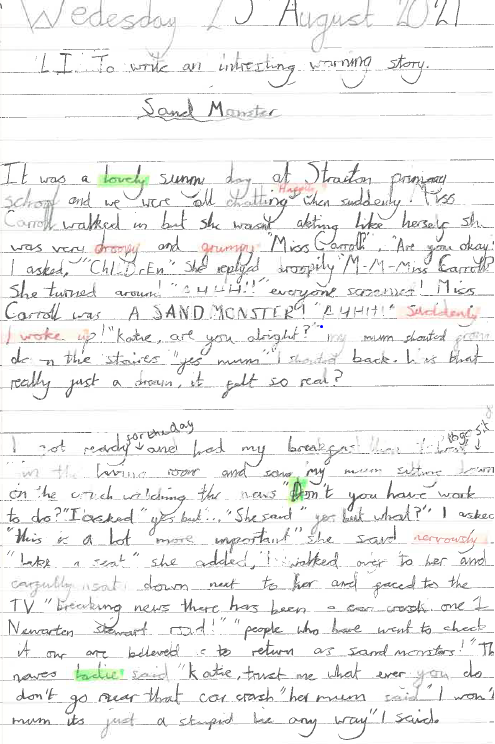 Wedesday 25 August 2021
L.I. To write an intresting warning story.
Sand Monster
It was a lovely sunny day at Straiton primary
Happily
school and we were all chatting when suddenly. Miss
Carroll walked in but she wasn't acting like herself she
was very droopy and grumpy "Miss Carroll", "Are you okay?"
I asked, "ChIlDrEn" She replyed "M-M-Miss Carroll?"
She turned around! "AHHH!" everyone screamed! Miss
Carroll was A SAND MONSTER! "AHH!!!" Suddenly
I woke up! "Katie, are you alright?" my mum shouted from
down the staires "yes mum" I shouted back. was that
really just a dream, it felt so real?
for the day
I got ready and had my breakfast then I
in the living room and saw my mum sitting down
on the couch watching the news "Don't you have work
to do?" I asked "yes but..." She said "yes but what?" I asked
"this is a lot more important" she said nervously.
"take a seat" she added, I walked over to her and
carefully sat down next to her and faced to the
TV "breaking news there has been a car crash one 1
Newarten stewart road!" "people who have went to check
it our are believed to return as sand monsters!" The
news ladie said "Katie, trust me what ever you do
don't go near that car crash" her mum said "I won't
mum its just a stupid lie any way" I said.